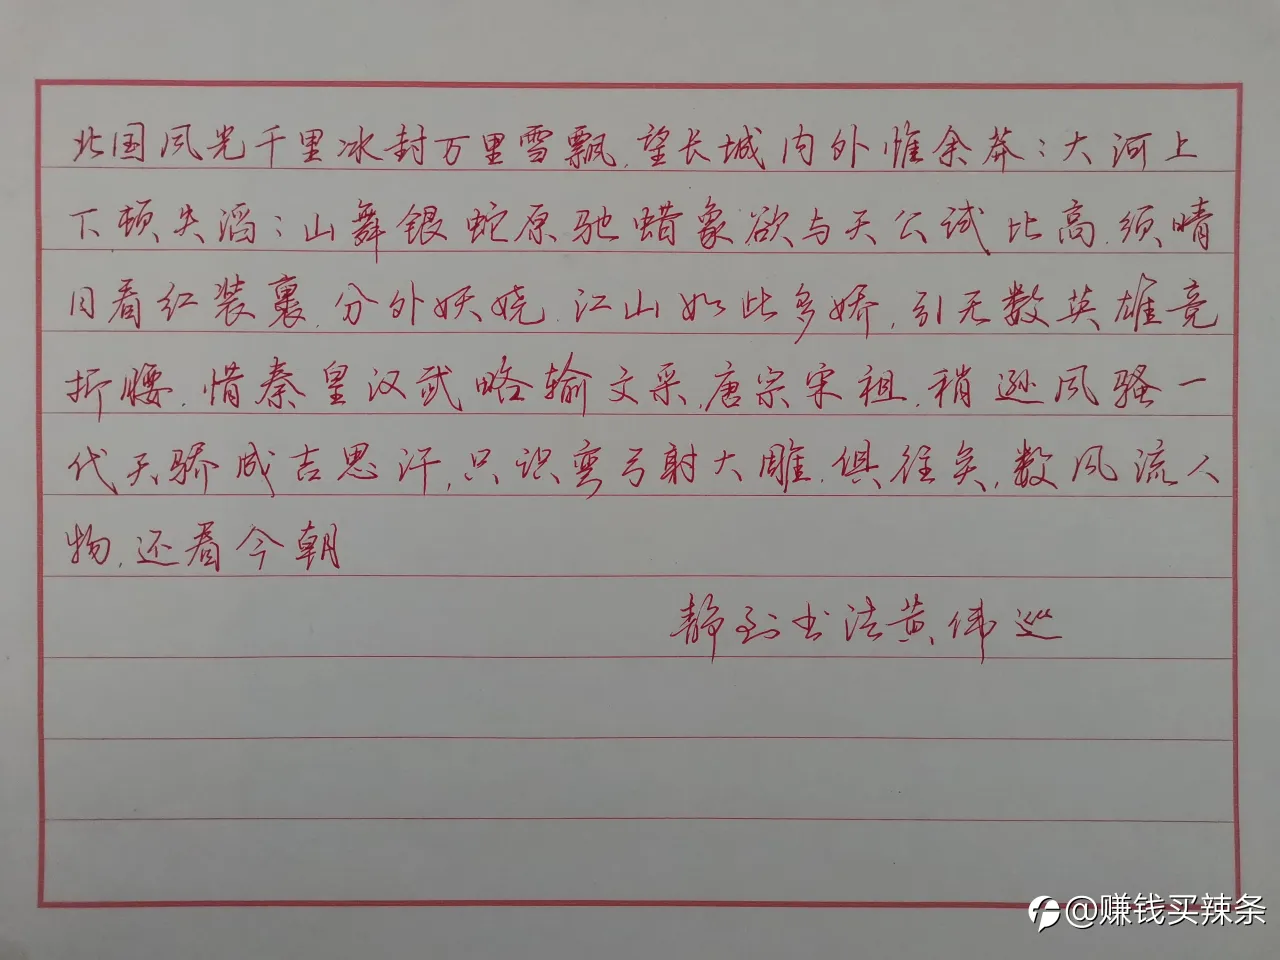 北国风光千里冰封万里雪飘,望长城内外惟余莽:大河上
下顿失滔:山舞银蛇原驰蜡象欲与天公试比高,须晴
日看红装裹,分外妖娆,江山如此多娇,引无数英雄竞
折腰,惜秦皇汉武略输文采,唐宗宋祖,稍逊风骚一
代天骄成吉思汗,只识弯弓射大雕,俱往矣,数风流人
物,还看今朝
静到书法黄伟巡
@赚钱买辣条